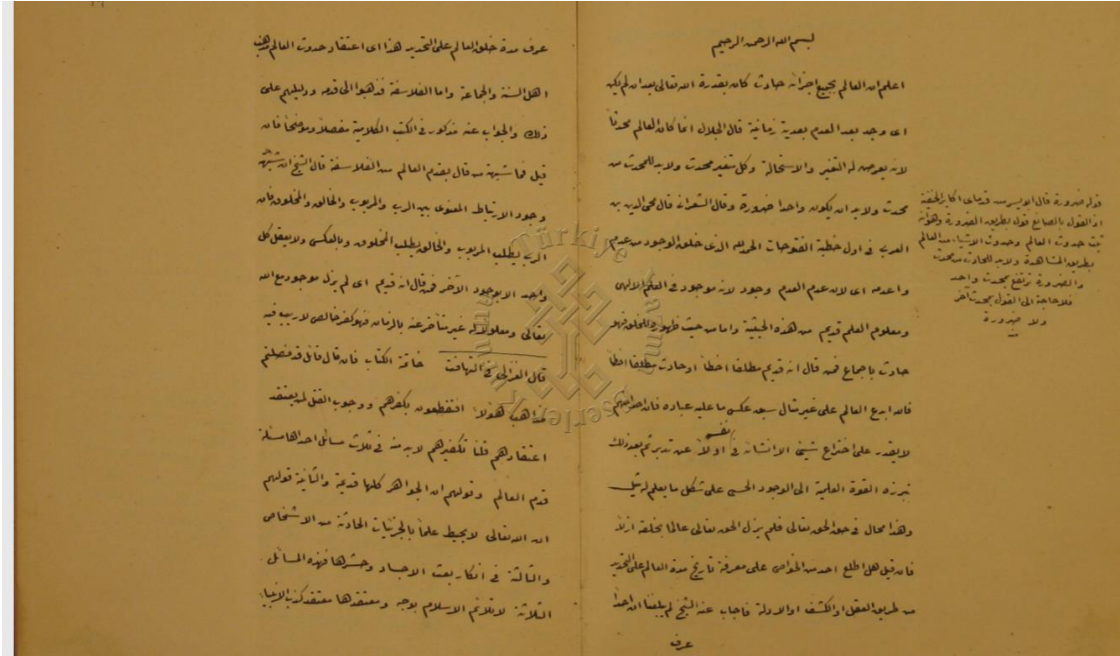 بسم الله الرحمن الرحيم
اعلم ان العالم بجميع اجزائه حادث كان بقدرة الله تعالى بعد ان لم يكن
اى وجد بعد العدم بعدية زمانية قال الجلال انما كان العالم محدثا
لانه يعرض له التغير والاستحالة وكل متغير محدث ولابد للمحدث من
محدث ولابد ان يكون واحدا ضرورة وقال الشعرانى قال محى الدين بن
العربى فى اول خطبة الفتوحات الحمد لله الذى خلق الوجود من عدم
واعدمه اى لان عدم العدم وجود لانه موجود فى العلم الالهى
ومعلوم العلم قديم من هذه الحيثية واما من حيث ظهوره للخلق فهو
حادث باجماع فمن قال انه قديم مطلقا اخطأ او حادث مطلقا اخطأ
فالله ابدع العالم على غير مثال سبق عكس ما عليه عباده فان احدا منهم
لا يقدر على اختراع شيئ الا انشائه فى نفسه اولا عن تدبر ثم بعد ذلك
تبرزه القوة العلمية الى الوجود الحسى على شكل ما يعلم له مثل
وهذا محال فى حق الحق تعالى فلم يزل الحق تعالى عالما بخلقه ازلا
فان قيل هل اطلع احد من الخواص على معرفة تاريخ مدة العالم على التحديد
من طريق العقل او الكشف او الادلة فاجاب عنه الشيخ لم يبلغنا ان احدا
عرف
قوله ضرورة قال من قدماى اكابر الحنفية
ان القول بالصانع قول بطريق الضرورة وهو انه
ثبت حدوث العالم وحدوث الاشياء من العالم
بطريق المشاهدة ولابد للحادث من محدث
والضرورة ترتفع بمحدث واحد
فلا حاجة الى القول بمحدث آخر
ولا ضرورة
عرف مدة خلق العالم على التحديد هذا اى اعتقاد حدوث العالم مذهب
اهل السنة والجماعة واما الفلاسفة فذهبوا الى قدمه ودليلهم على
ذلك والجواب عنه مذكور فى الكتب الكلامية مفصلا وموضحا فان
قيل فما شبهة من قال بقدم العالم من الفلاسفة قال الشيخ ان شبهتهم
وجود الارتباط المعنوى بين الرب والمربوب والخالق والمخلوق فان
الرب يطلب المربوب والخالق يطلب المخلوق وبالعكس ولا يعقل كل
واحد الا بوجود الآخر فمن قال انه قديم اى لم يزل موجود مع الله
تعالى ومعلولا له غير متأخر عنه بالزمان فهو كفر خالص لا ريب فيه
قال الغزالى فى التهافت خاتمة الكتاب فان قال قائل قد فصلتم
مذاهب هؤلاء افتقطعون بكفرهم ووجوب القتل لمن يعتقد
اعتقادهم قلنا تكفيرهم لابد منه فى ثلاث مسائل احداها مسئلة
قدم العالم وقولهم ان الجواهر كلها قديمة والثانية قولهم
ان الله تعالى لا يحيط علما بالجزئيات الحادثة من الاشخاص
والثالثة فى انكار بعث الاجساد وحشرها فهذه المسائل
الثلاثة لا تلائم الاسلام بوجه ومعتقدها معتقد كذب الانبياء
Türkiye Yazma Eserler Kurumu